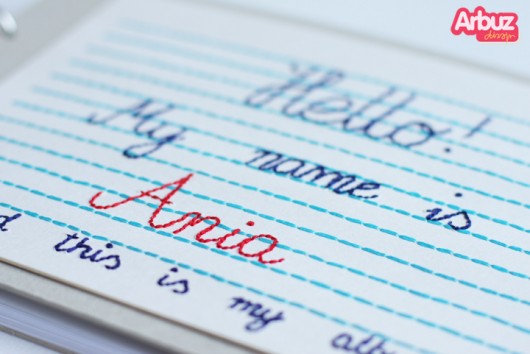 Arbuz
design
Hello!
My name is
Ania
this is my